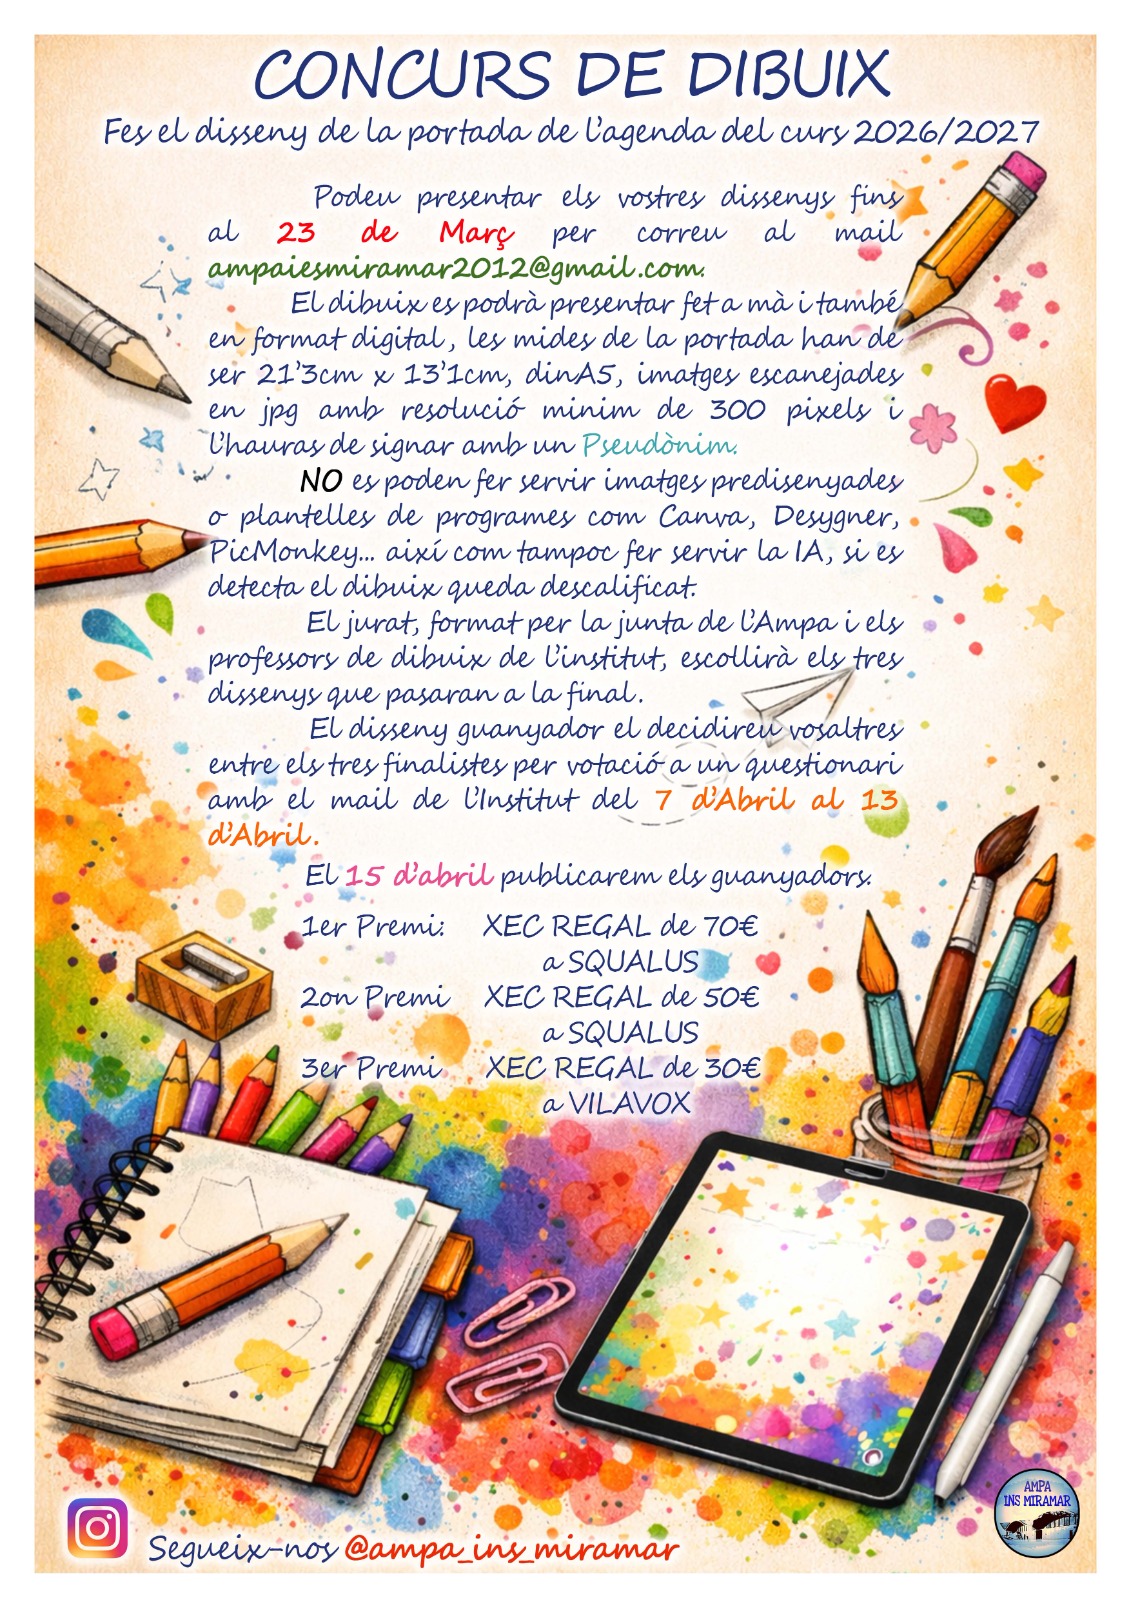 CONCURS DE DIBUIX
Fes el disseny de la portada de l'agenda del curs 2026/2027
Podeu presentar els vostres dissenys fins
al 23 de Març per correu al mail
ampaiesmiramar2012@gmail.com.
El dibuix es podrà presentar fet a mà i també
en format digital, les mides de la portada han de
ser 21'3cm x 13'1cm, dinA5, imatges escanejades
en jpg amb resolució minim de 300 pixels i
l'hauras de signar amb un Pseudònim.
NO es poden fer servir imatges predisenyades
o plantelles de programes com Canva, Desygner,
PicMonkey... així com tampoc fer servir la IA, si es
detecta el dibuix queda descalificat.
El jurat, format per la junta de l'Ampa i els
professors de dibuix de l'institut, escollirà els tres
dissenys que pasaran a la final.
El disseny guanyador el decidireu vosaltres
entre els tres finalistes per votació a un questionari
amb el mail de l'Institut del 7 d'Abril al 13
d'Abril.
El 15 d'abril publicarem els guanyadors.
1er Premi: XEC REGAL de 70€
a SQUALUS
2on Premi XEC REGAL de 50€
a SQUALUS
3er Premi XEC REGAL de 30€
a VILAVOX
AMPA
INS MIRAMAR
Segueix-nos @ampa_ins_miramar